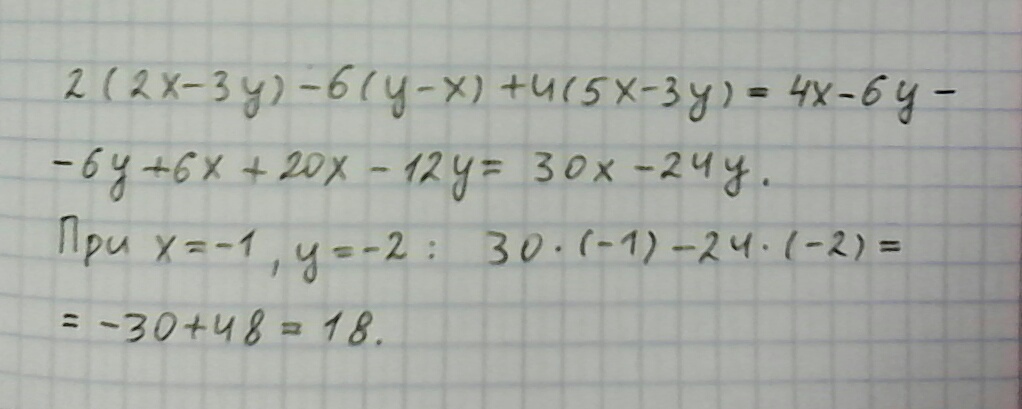 2(2x-3y)-6(y-x)+4(5x-3y)=4x-6y-
-6y+6x+20x-12y=30x-24y.
При x=-1, y=-2: 30·(-1)-24·(-2)=
=-30+48=18.